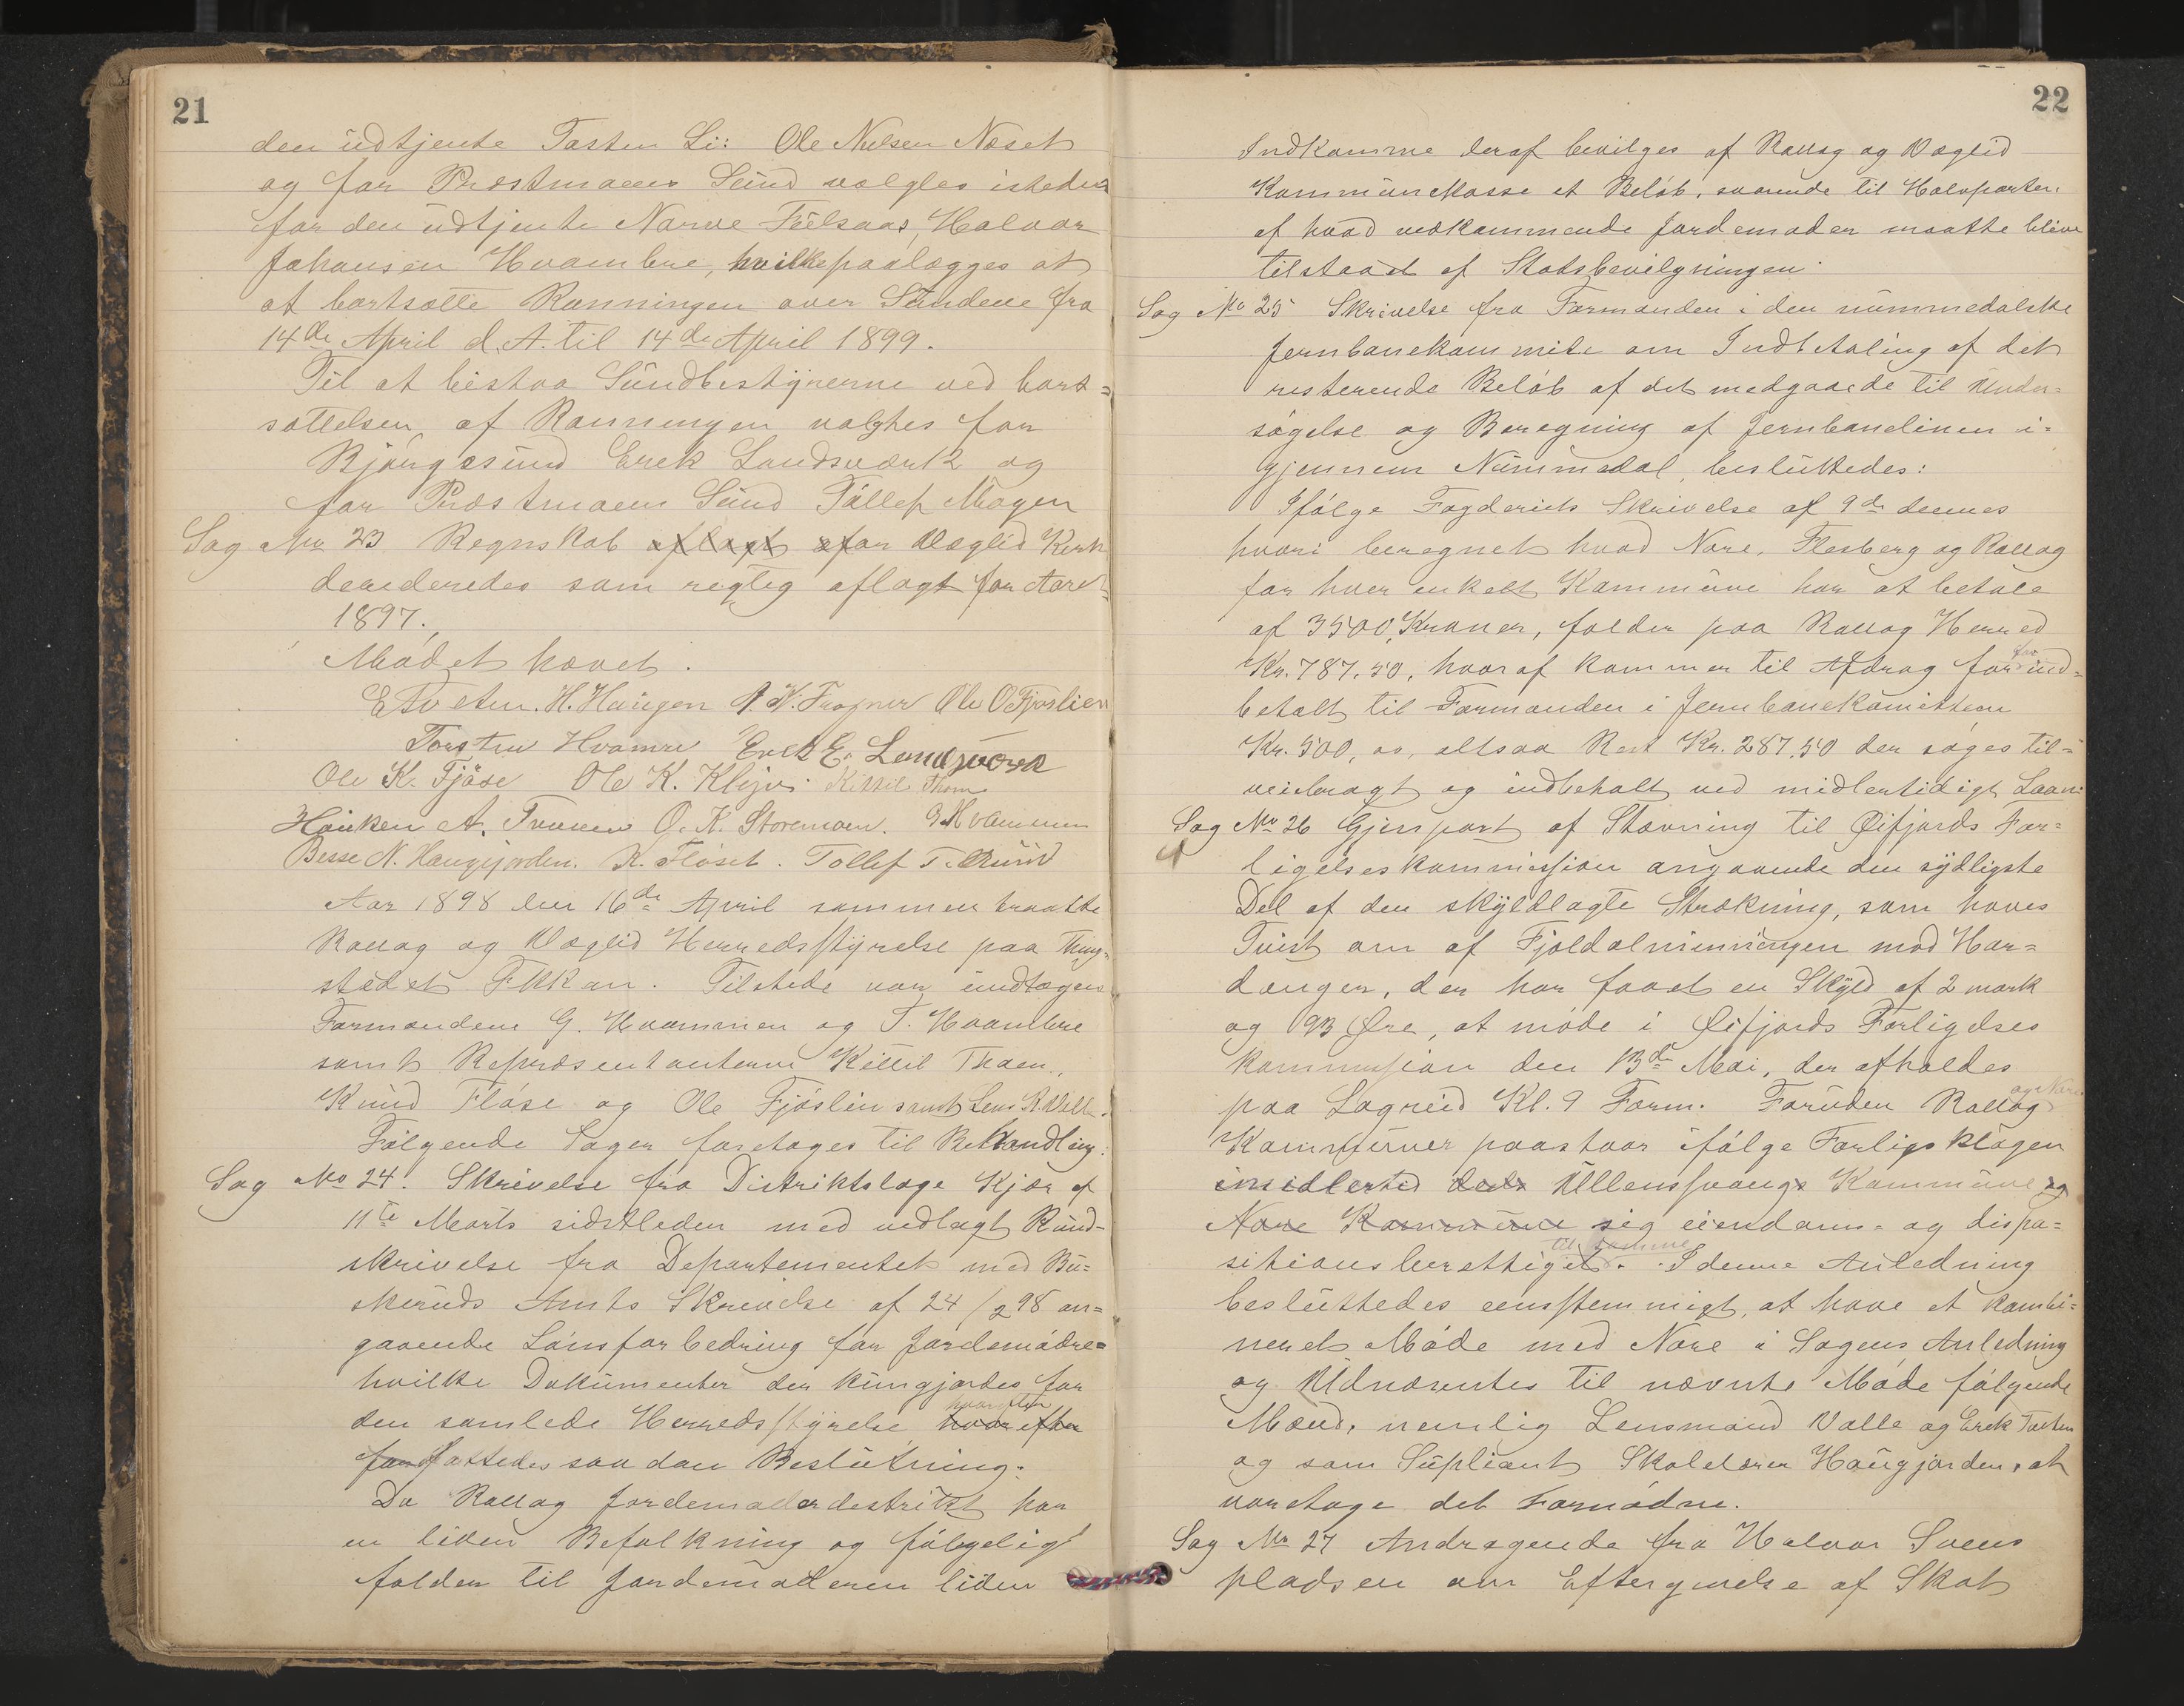 21
den udtjente Torsten Li: Ole Nilsen Næset
og for Præstmoens Sund valgtes isteden
for den udtjente Narve Fulsaas, Halvor
Johansen Hvambre, hvilke paalægges at
at bortsætte Roningen over Sundene fra
14de April d. A. til 14de April 1899.
Til at bistaa Sundbestyrerne ved bort=
sættelsen af Roningen valgtes for
Bjørgesund Erek Landsverk og
for Præstmoen Sund Tollef Mogen
Sag No 23 Regnskab aflagt for Væglid Kirk
desideredes som rigtig aflagt for Aaret
1897.
Mødet hævet.
E Tveten. H. Haugen A. K. Fragner Ole O Fjøslien
Torsten Hvamre Erek E. Landsverk
Ole K. Fjöse Ole K. Klejvi Kittil Thoen
Haaken A. Traaen O. K. Storemoen. G Hvammen
Besse N. Haugjorden. K. Fløset. Tollef T. Ruud
Aar 1898 den 16de April sammentraatte
Rollag og Væglid Herredsstyrelse paa Thing=
stedet Fekjan. Tilstede var undtagen
Formændene G. Hvammen og T. Hvambre
samt Repræsentanterne Kittil Thoen,
Knud Fløse og Ole Fjøslien samt Lens. R. Valle.
Følgende Sager foretages til Behandling:
Sag No 24. Skrivelse fra Distriktslæge Kjær af
11te Marts sidstleden med vedlagt Rund=
skrivelse fra Departementet med Bu=
skeruds Amts Skrivelse af 24/2 98 an=
gaaende Lønsforbedring for Jordemødre=
hvilke Dokumenter der kungjordes for
den samlede Herredsstyrelse hvorefter hvorefter
forfattedes saadan Beslutning:
Da Rollag Jordemoderdestrikt har
en liden Befolkning og følgelig
falder til Jordemoderen liden
22
Indkomme deraf bevilges af Rollag og Væglid
Kommunekasse et Beløb, svarende til Halvparten
af hvad vedkommende Jordemoder maatte blive
tilstaaet af Statsbevilgningen.
Sag No 25 Skrivelse fra Formanden i den nummedalske
Jernbanekommite om Indbetaling af det
resterende Beløb af det medgaaede til Under=
søgelse og Beregning af Jernbanelinen i=
gjennem Nummedal, besluttedes:
Ifølge Fogderiets Skrivelse af 9de dennes
hvori beregnet hvad Nore, Flesberg og Rollag
for hver enkelt Kommune har at betale
af 3500 Kroner, falder paa Rollag Herred
Kr. 787.50, hvoraf kommer til Afdrag for for ind=
betalt til Formanden i Jernbanekomitteen
Kr. 500,00, altsaa Rest Kr. 287.50 der søges til=
veiebragt og indbetalt ved midlertidigt Laan.
Sag No 26 Gjenpart af Stævning til Øifjords For=
ligelseskommission angaaende den sydligste
Del af den skyldlagte Strækning, som haves
Tvist om af Fjeldalminningen mod Har=
danger, der har faaet en Skyld af 2 mark
og 93 Øre, at møde i Øifjords Forligelses
kommission den 13de Mai, der afholdes
paa Lagreid Kl. 9 Form. Foruden Rollag og Nore
Kommuner paastaar ifølge Forligsklagen
imidlertid dels Ullensvangs Kommune og
Nore Kommune sig eiendoms= og dispo=
sitionsberettiget til samme. I denne Anledning
besluttedes eensstemmigt, at have et kombi=
neret Møde med Nore i Sagens Anledning
og Udnævntes til nævnte Møde følgende
Mænd, nemlig Lensmand Valle og Erek Tveten
og som Supliant Skolelærer Haugjorden, at
varetage det Fornødne.
Sag No 27 Andragende fra Halvor Svens
pladsen om Eftergivelse af Skat